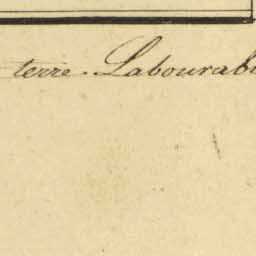 terre. Labourab